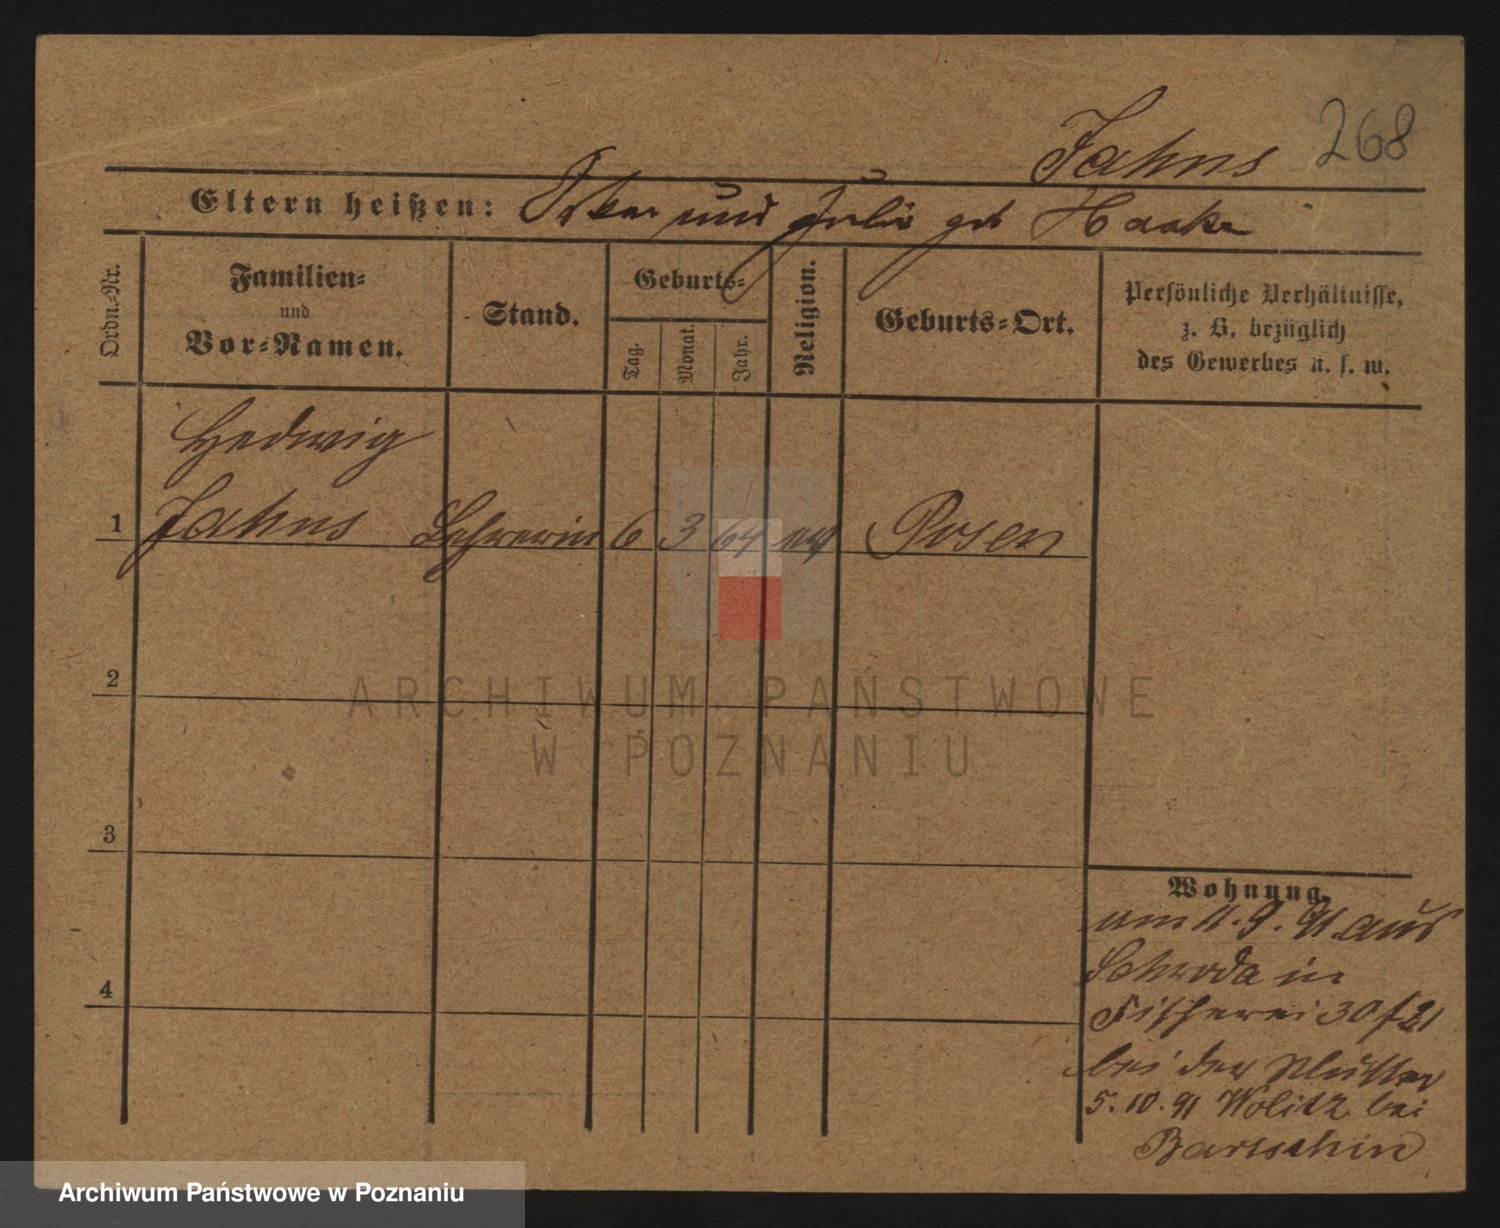 Jahns 268
Eltern heißen: Oskar und Julie geb Haake
Ordn.-Nr.
Familien-
und
Vor-Namen.
Stand.
Geburts-
Tag.
Monat.
Jahr.
Religion.
Geburts-Ort.
Persönliche Verhältnisse,
z. B. bezüglich
des Gewerbes u. s. w.
Hedwig
1 Jahns Lehrerin 6 3 64 Posen
2
3
4
Wohnung.
am 11.9.91 aus
Schroda in
Fischerei 30
bei der Mutter
5.10.91 Wolitz bei
Bartschin
ARCHIWUM PAŃSTWOWE
W POZNANIU
Archiwum Państwowe w Poznaniu